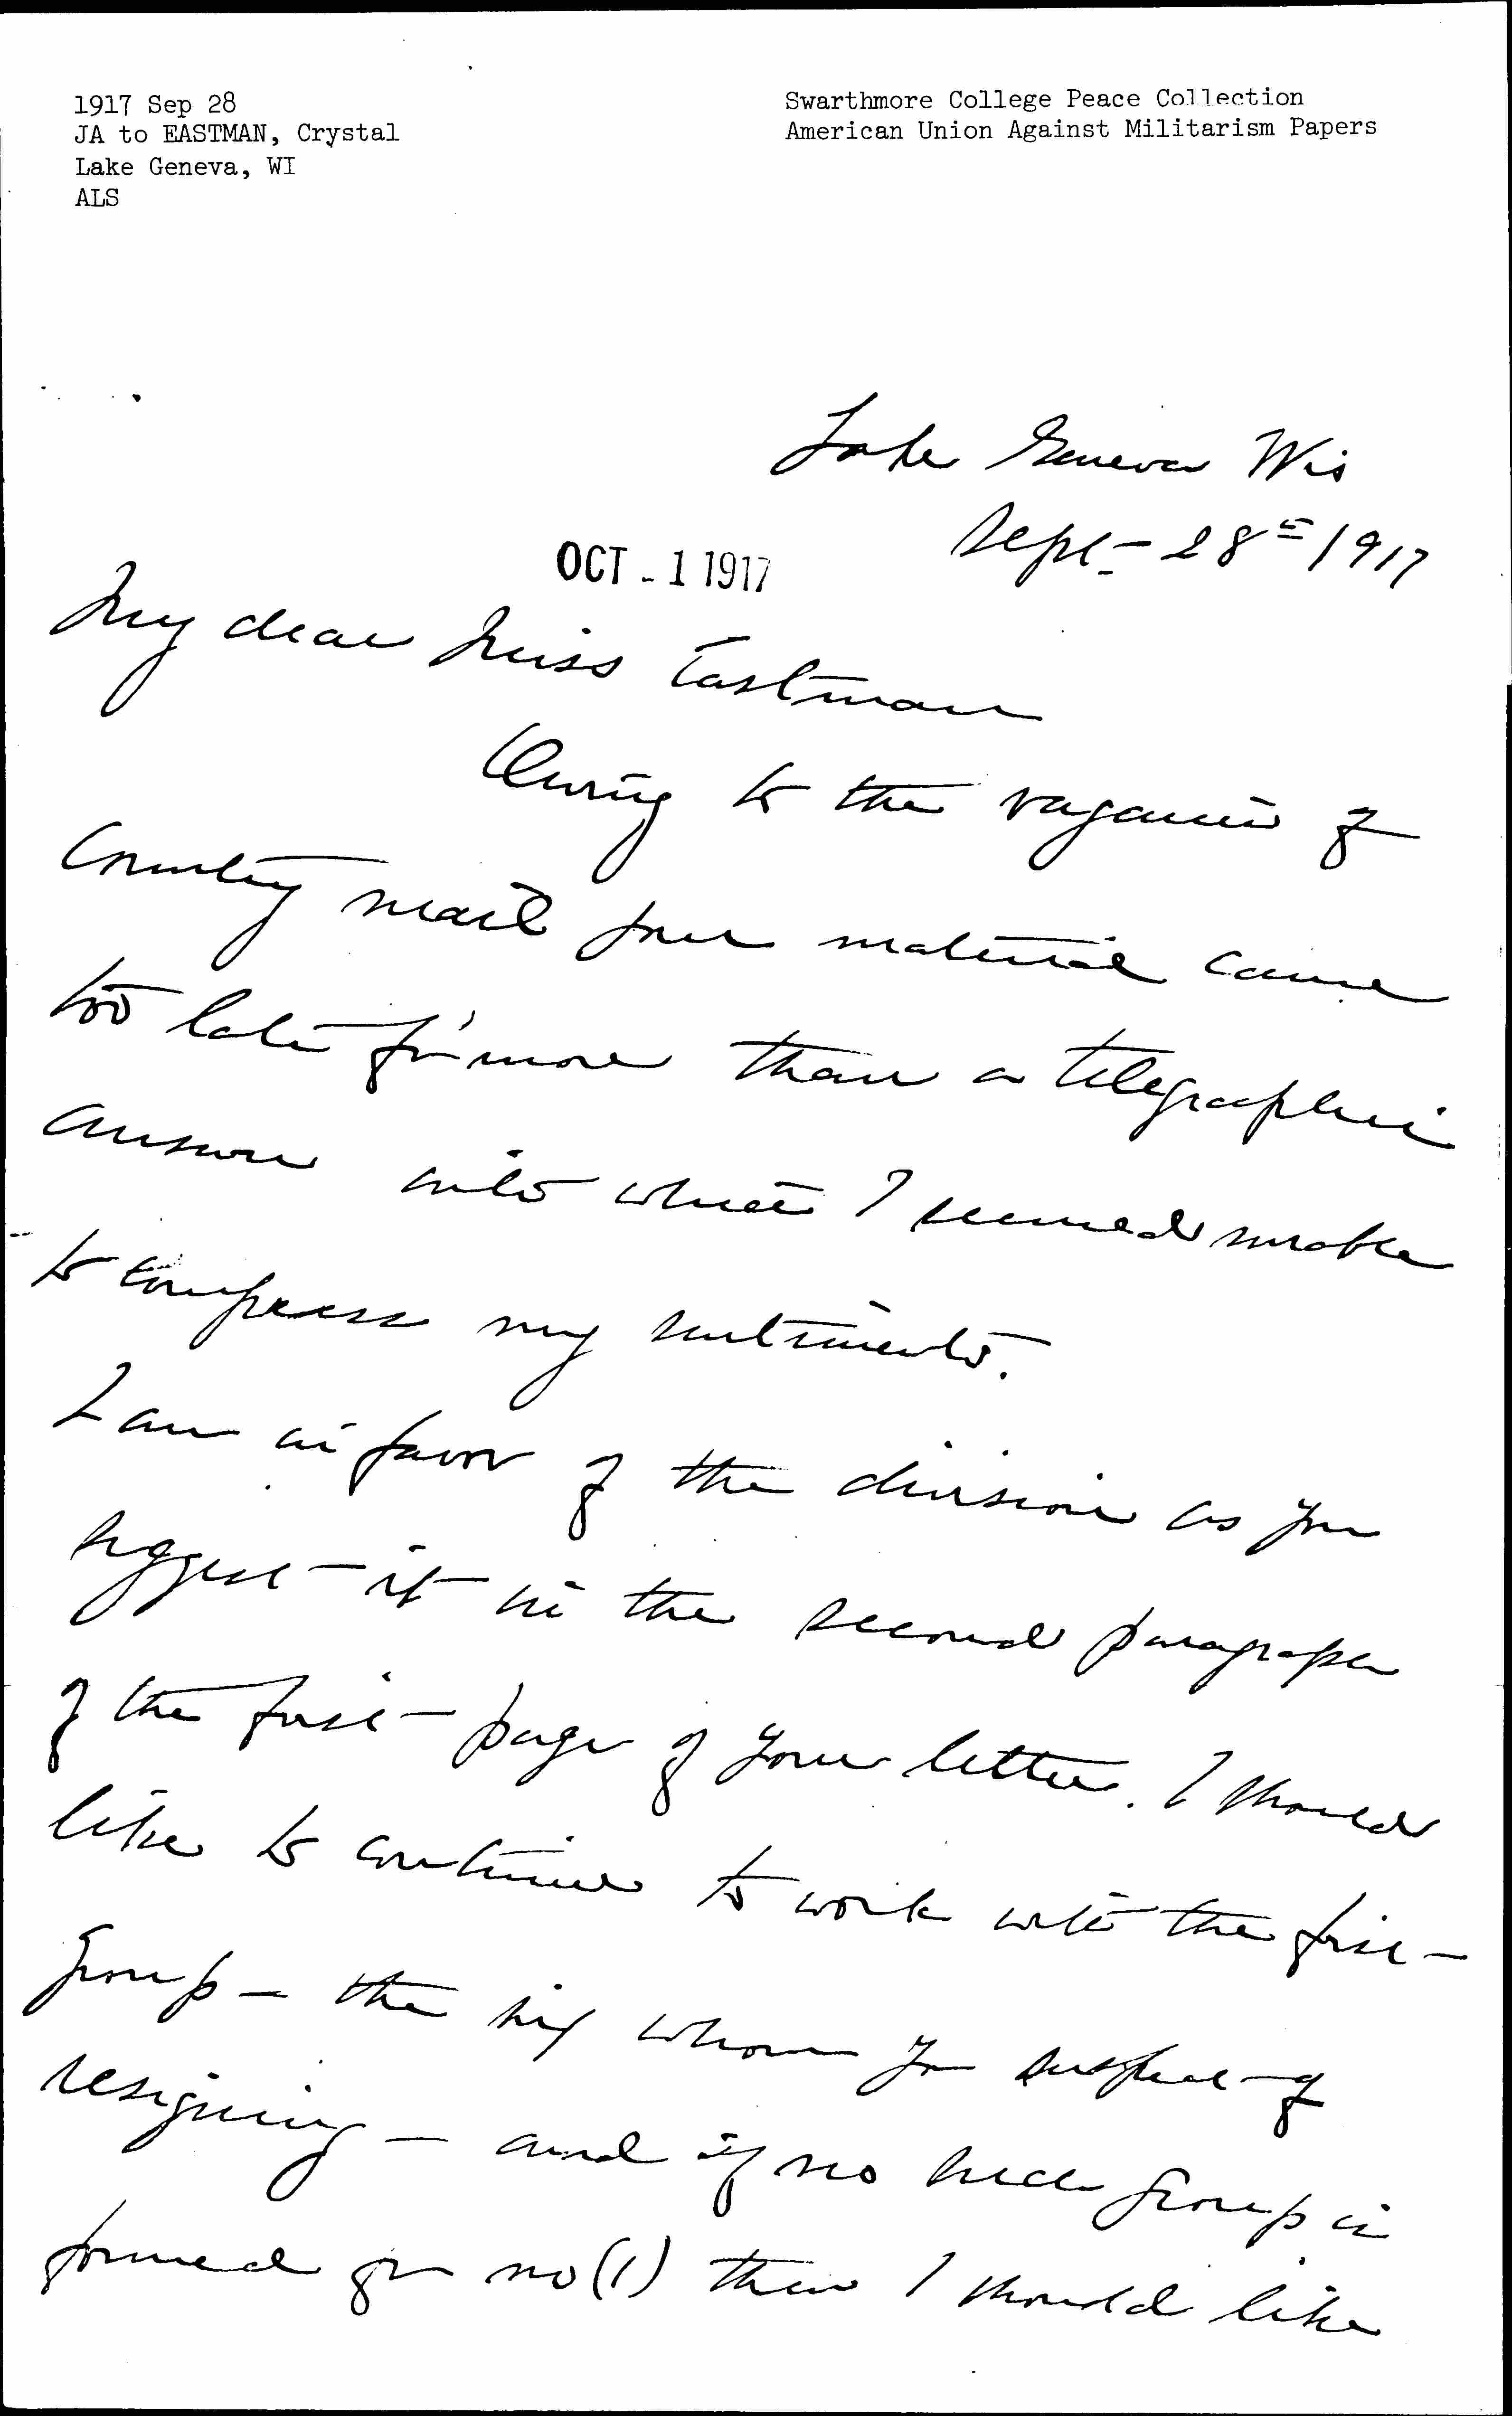 1917 Sep 28
JA to EASTMAN, Crystal
Lake Geneva, WI
ALS
Swarthmore College Peace Collection
American Union Against Militarism Papers
Lake Geneva Wis
Sept - 28th 1917
OCT - 1 1917
My dear Miss Eastman
Owing to the vagaries of
Country mail your material came
too late for more than a telegraphic
answer into which I seemed unable
to compress my sentiments.
I am in favor of the division as you
suggest it in the second paragraph
of the first page of your letter. I should
like to continue to work with the first
group - the six whom you suspect of
resigning - and if no such group is
formed for no (1) then I should like